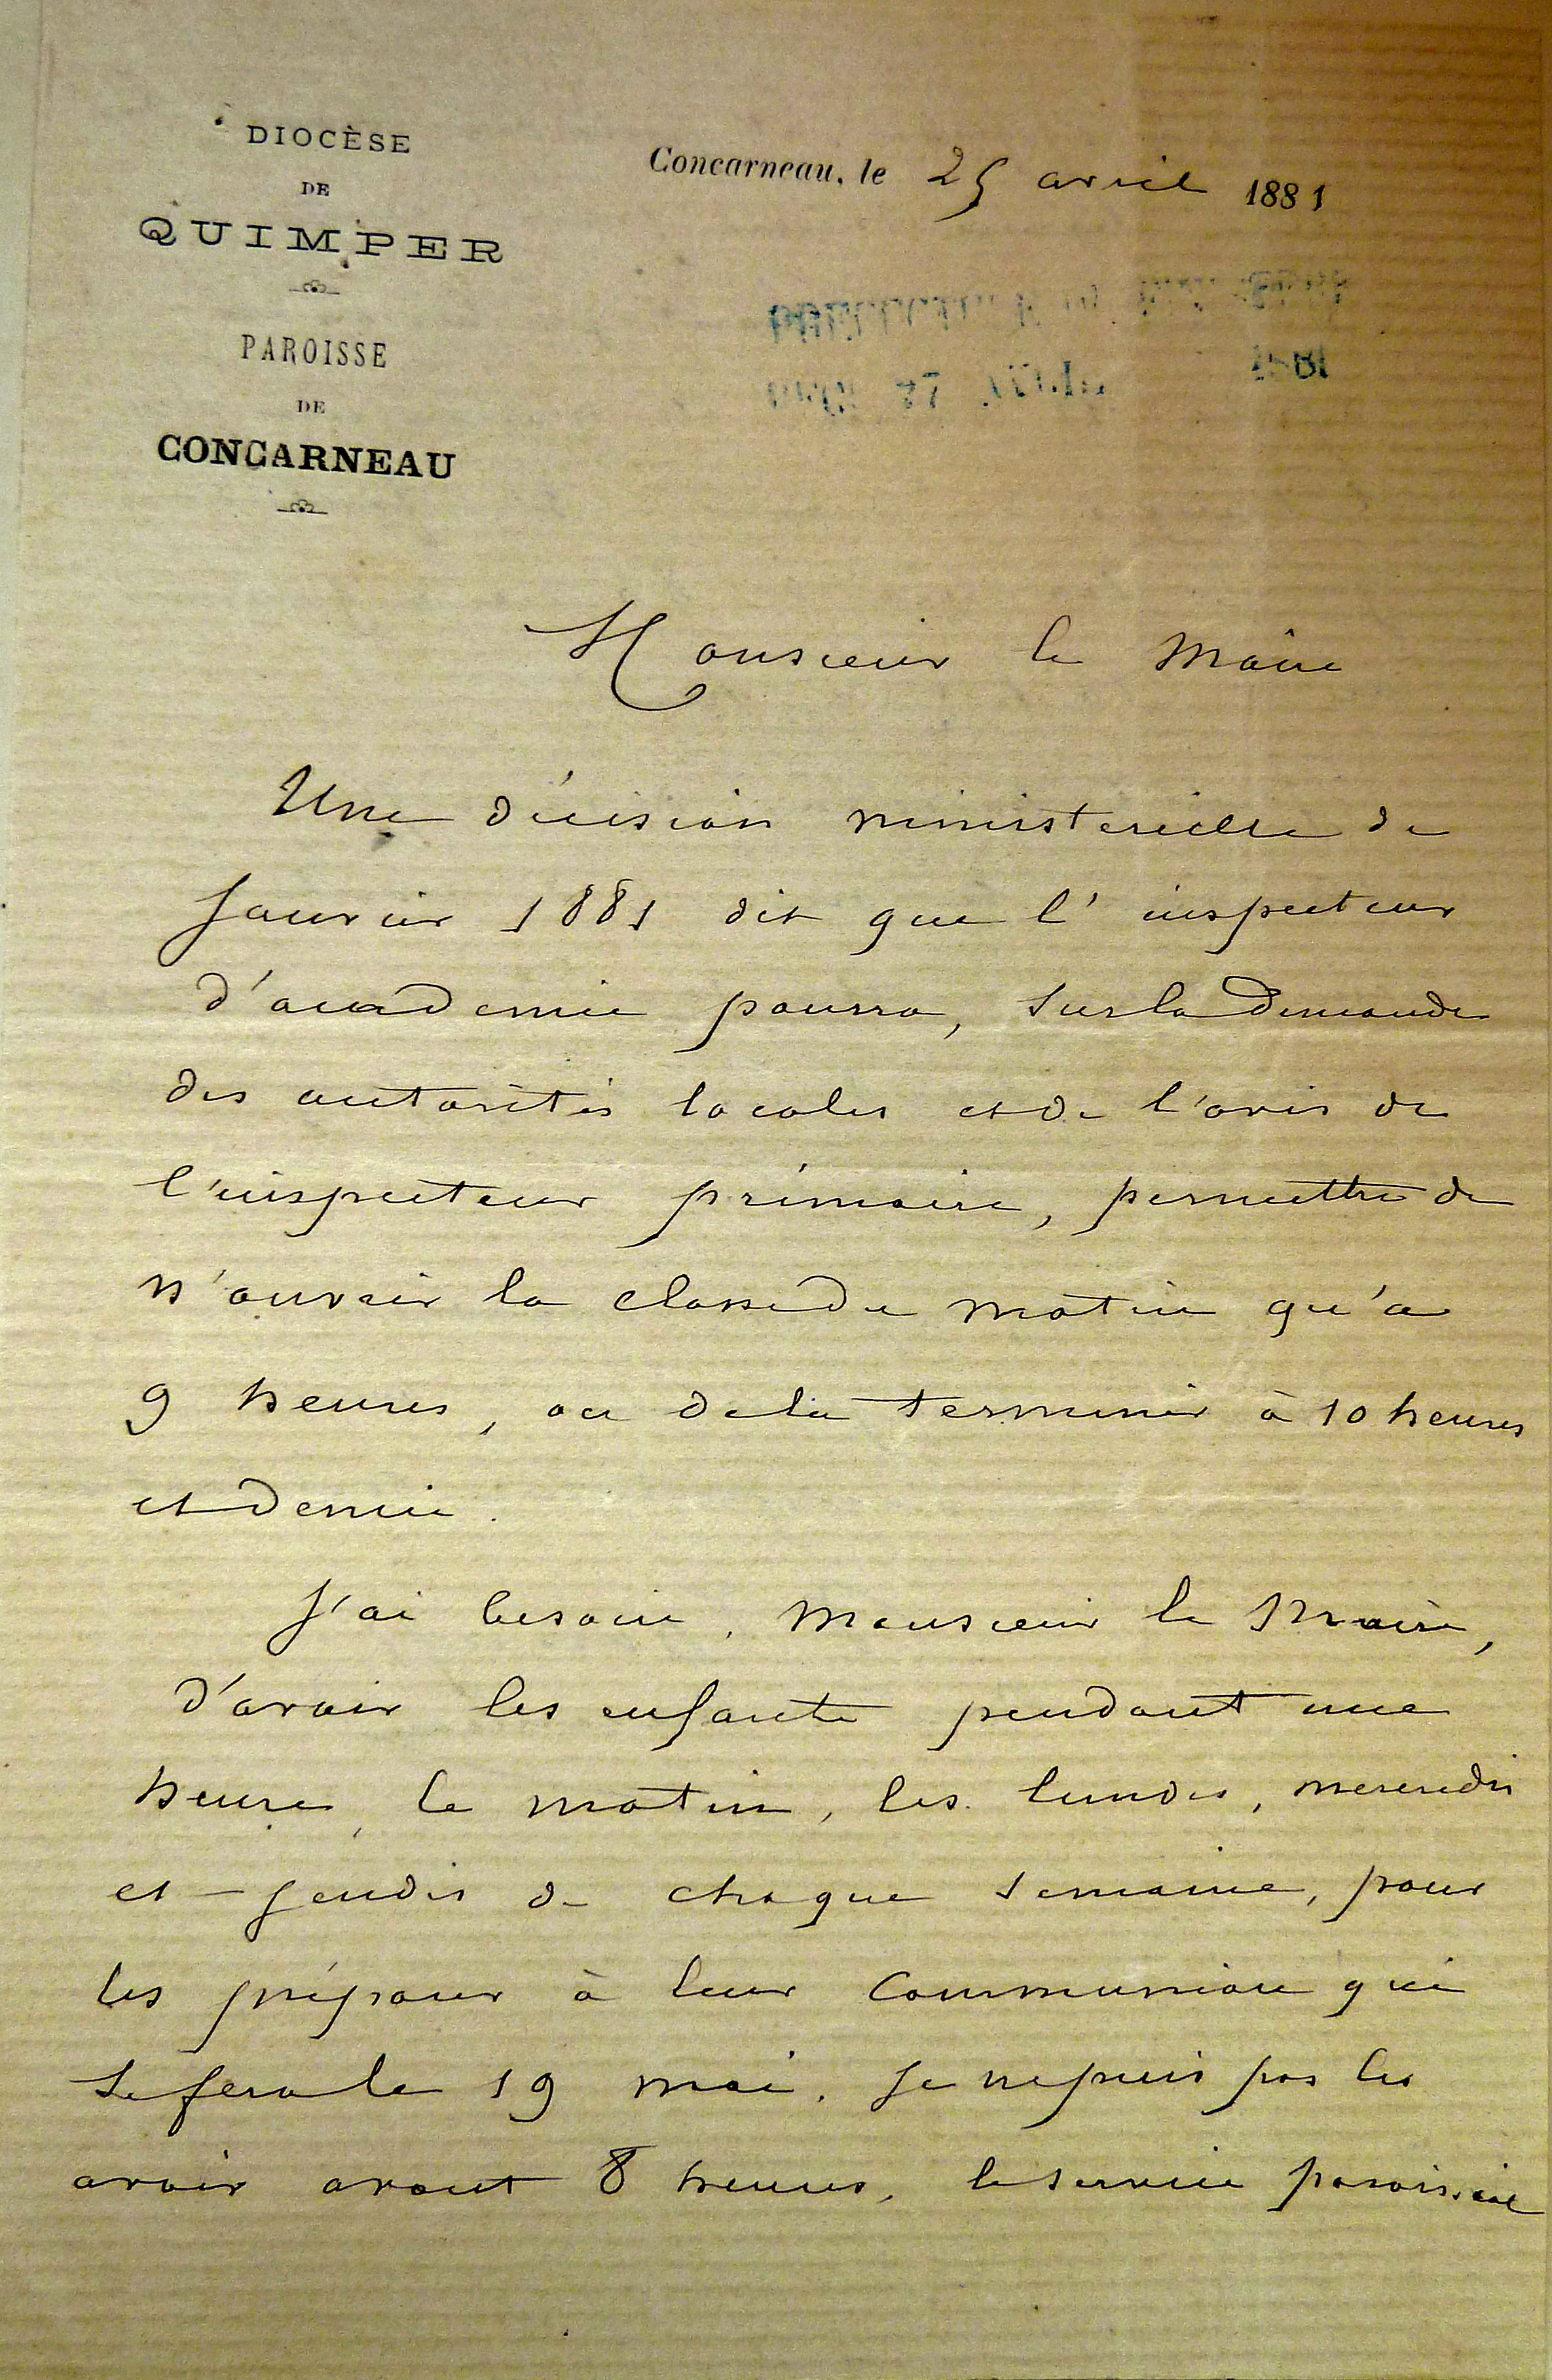 DIOCÈSE
DE
QUIMPER
PAROISSE
DE
CONCARNEAU
Concarneau, le 25 avril 1881
1881
Monsieur le Maire
Une décision ministerielle de
Janvier 1881 dit que l'inspecteur
d'academie pourra, sur la demande
des autorités locales et de l'avis de
l'inspecteur primaire, permettre de
n'ouvrir la classe du matin qu'a
9 heures, ou de la terminer à 10 heures
et demie.
J'ai besoin, Monsieur le Maire,
d'avoir les enfants pendant une
heure, le matin, les lundis, mercredis
et jeudis de chaque semaine, pour
les préparer à leur Communion qui
se fera le 19 mai. Je ne puis pas les
avoir avant 8 heures, le service paroissial